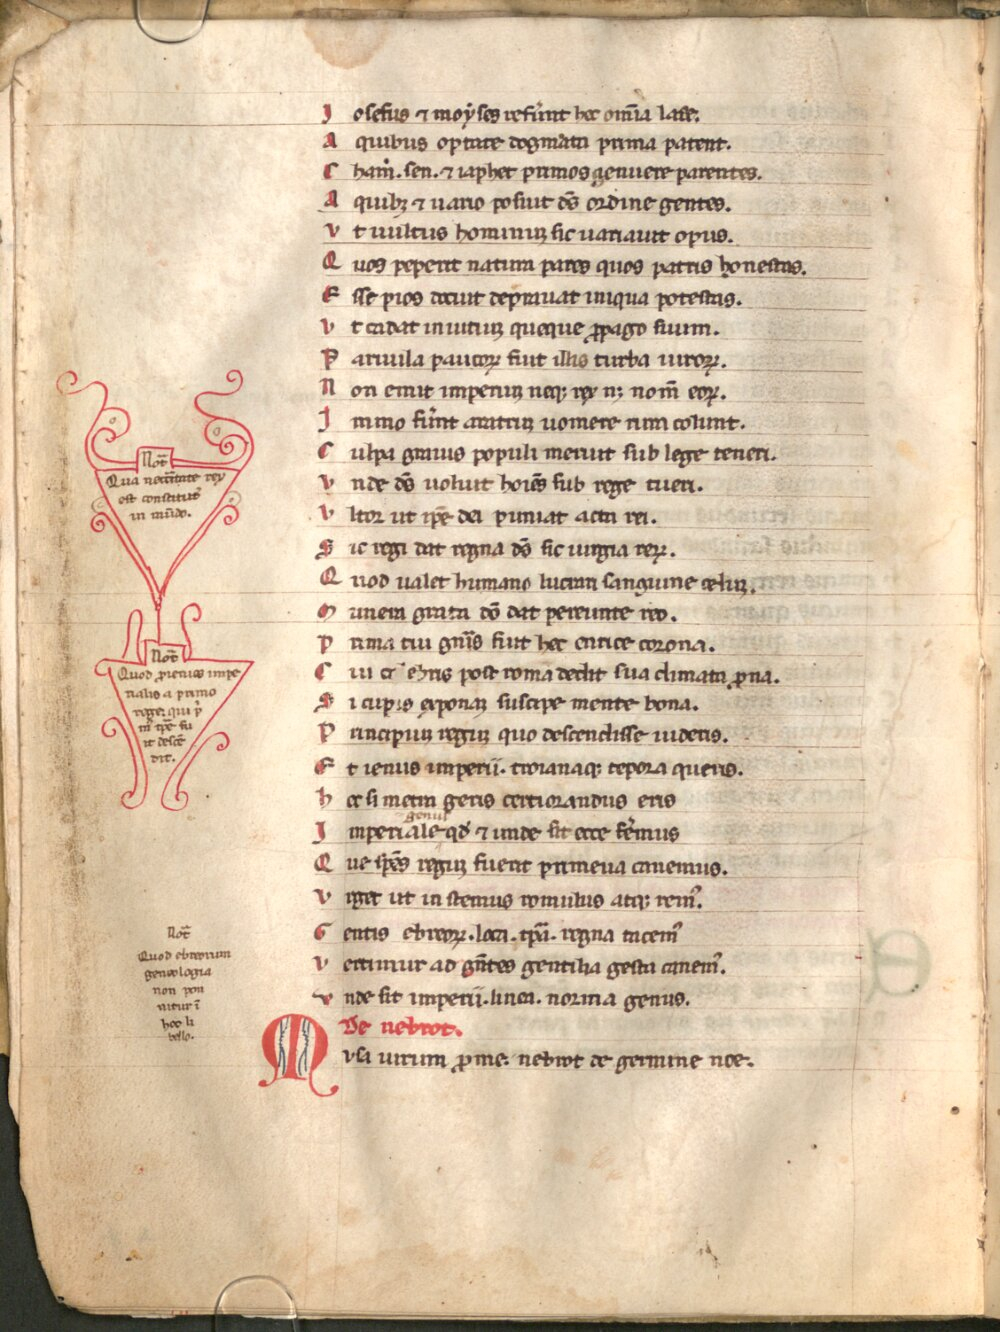 Josefus ⁊ moyses referunt hec omnia late.
A quibus optate dogmata prima patent.
Cham. sen. ⁊ iaphet primos genuere parentes.
A quibꝫ ⁊ uario posuit dō ordine gentes.
Vt uultus hominuꝫ sic uariauit opus.
Quos peperit natura pares quos patris honestas.
Esse pios docuit deprauat iniqua potestas.
Vt cadat in uitiuꝫ queque ꝓpago suum.
Paruula paucoꝝ fuit illis turba uiroꝝ.
Non erat imperiuꝫ neqꝫ rex nꝫ nomē eoꝝ.
Immo fuerunt aratruꝫ uomere rura colunt.
Culpa grauius populi meruit sub lege teneri.
Vnde dō uoluit hoīes sub rege tueri.
Vltor ut ipē dei puniat acta rei.
Sic regi dat regna dō sic iurgia reꝝ.
Quod ualet humano luciari sanguine celuꝫ.
Munera grata dō dat pereunte reo.
Prima tui gnīs fuit hec cortice corona.
Cui post roma dedit sua climata ꝓna.
Si cupis exponaꝫ suscipe mente bona.
Principiuꝫ regiuꝫ quo descendisse uidetis.
Et ienus imperii. troianaqꝫ tēpora queris.
Hec si metra geris certiorandus eris
Imperiale genus qd ⁊ unde sit ecce feremus
Que spēs regiuꝫ fuerit primeua canemus.
Vrget ut instemus romulus atqꝫ remꝰ.
Gentis ebreoꝝ. loca. tpā. regna tacemꝰ
Vertimur ad gentes gentilia gesta canemꝰ.
Vnde sit imperii. linea. norma genus.
De nebrot.
Musa uirum ꝓme. nebrot de germine noe.
Not
Qua necessitate rex
est constitutꝰ
in mūdo.
Not
Quod ꝓienies impe
rialis a primo
rege qui pͥ
in tpē fu
it descē
dit.
Not
Quod ebreorum
geneologia
non pon
nitur ī
hoc li
bello.